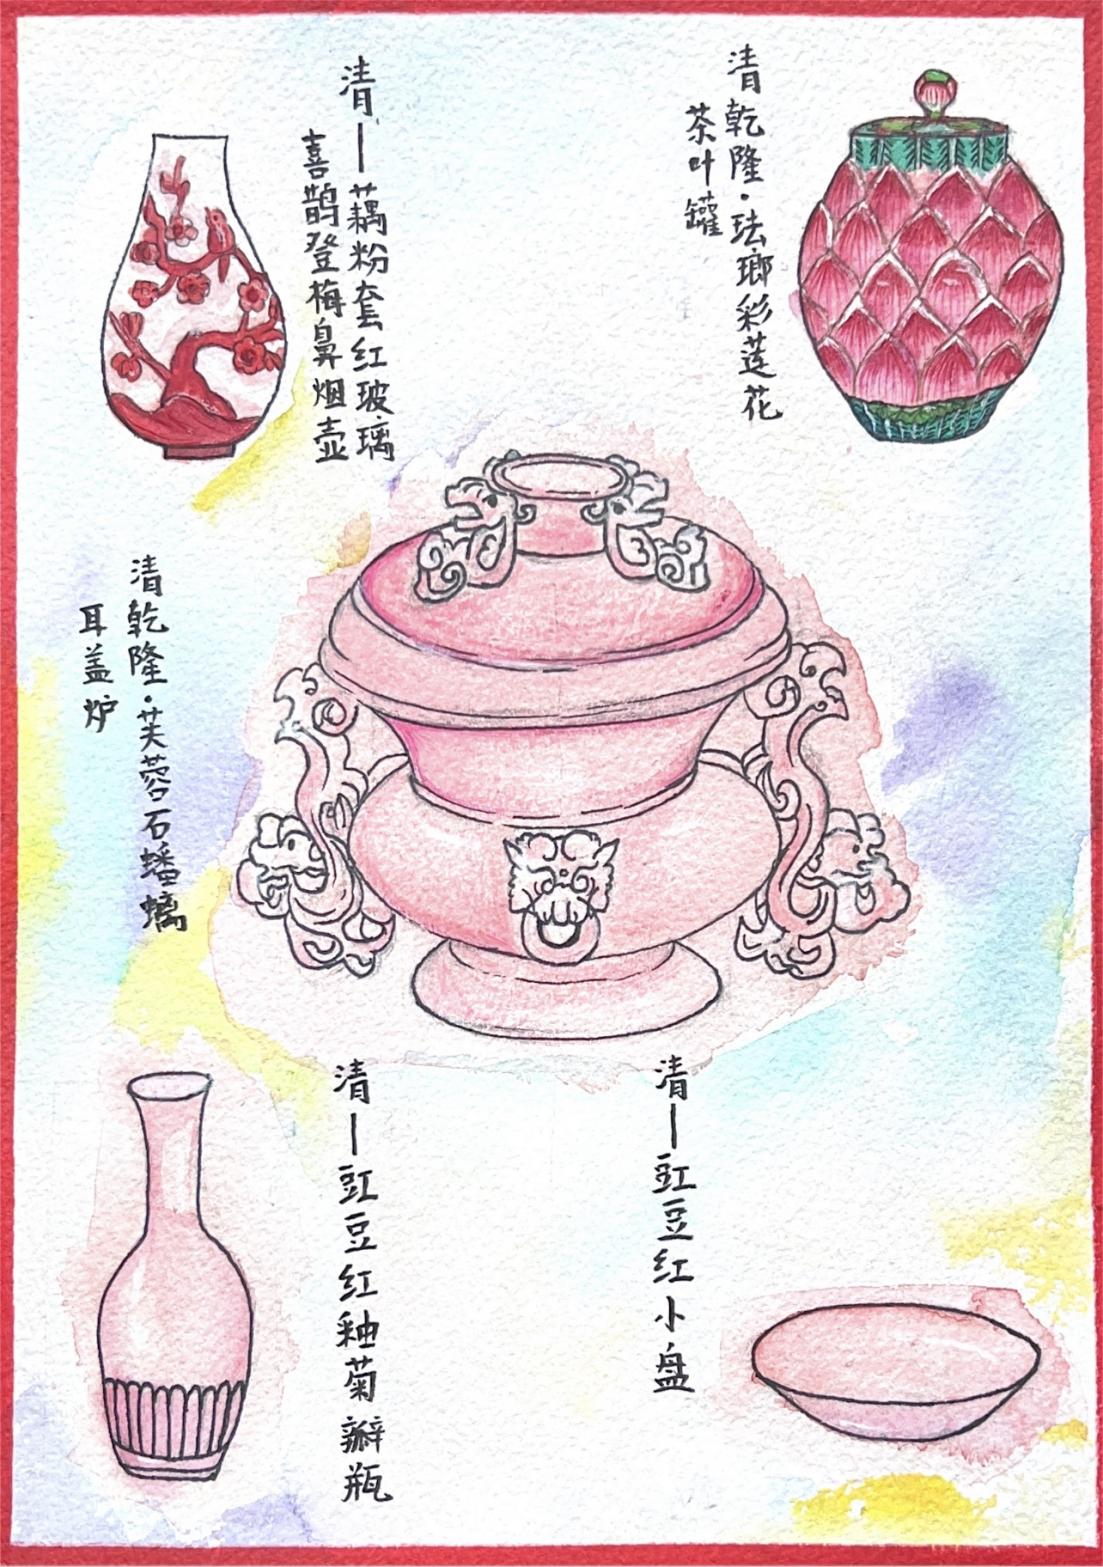 清乾隆·珐瑯彩莲花
茶叶罐
清—藕粉套红玻璃
喜鹊登梅鼻烟壶
清乾隆·芙蓉石蟠螭
耳盖炉
清—豇豆红小盘
清—豇豆红釉菊瓣瓶